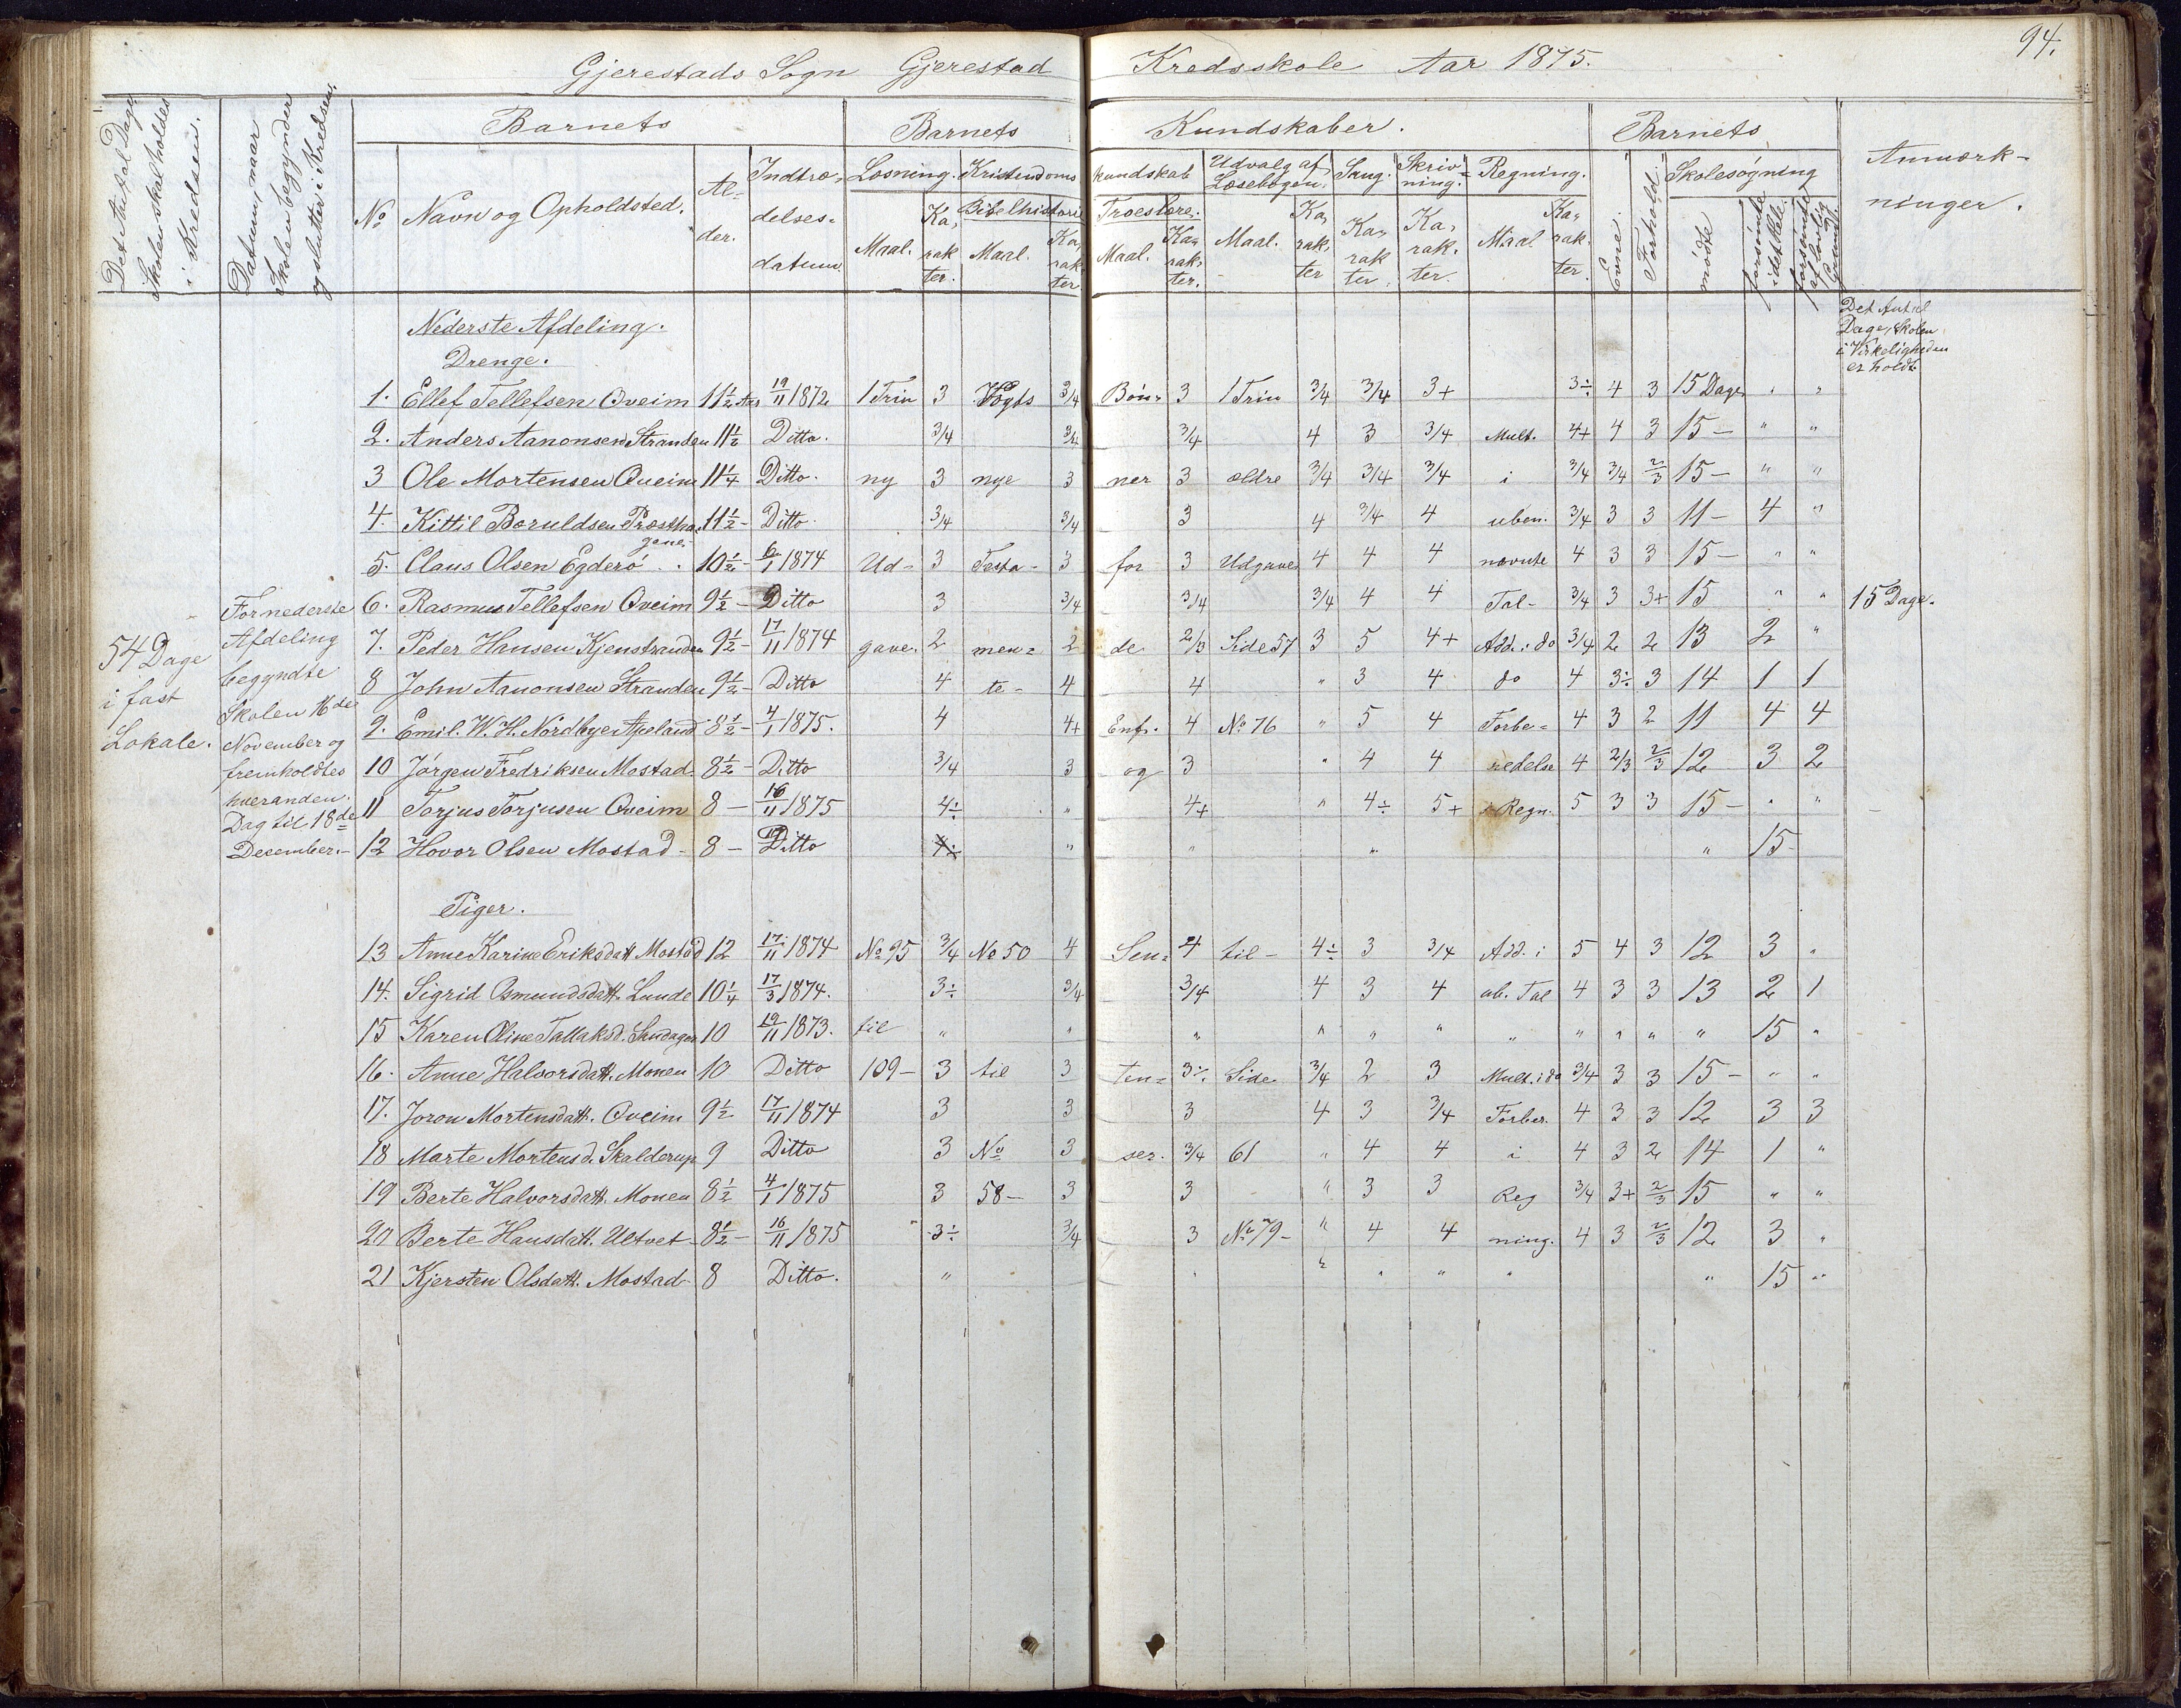 94.
Gjerestads Sogn Gjerestad Kredsskole Aar 1875.
Det Antal Dage Skolen skal holdes i Kredsen.
Datum, naar Skolen begynder og slutter i Kredsen.
Barnets Barnets Kundskaber. Barnets Anmærk-
ninger.
No Navn og Opholdsted. Al-
der. Indtræ-
delses-
datum.
Læsning. Kristendoms kundskab Udvalg af Læsebogen. Sang. Skriv-
ning. Regning. Evne. Forhold. Skolesøgning
Bibelhistorie Troeslære.
Maal. Ka-
rak
ter. Maal. Ka-
rak-
ter Maal. Ka-
rak-
ter. Maal. Ka-
rak-
ter Ka-
rak
ter. Ka-
rak-
ter. Maal Ka-
rak-
ter. mødte forsømte i det Hele. forsømte af lovlig Grund.
Nederste Afdeling.
Drenge.
Det Antal
Dage, Skolen
i Virkeligheden
er holdt
1. Ellef Tellefsen Qveim 11½ Aar 19/11 1872 1 Trin 3 Vogts 3/4 Bøn- 3 1 Trin 3/4 3/4 3+ 3÷ 4 3 15 Dage " "
2. Anders Aanonsen Stranden 11½ Ditto. 3/4 3/4 3/4 4 3 3/4 Mult. 4+ 4 3 15 - " "
3 Ole Mortensen Qveim 11¼ Ditto. ny 3 nye 3 ner 3 ældre 3/4 3/4 3/4 i 3/4 3/4 2/3 15 - " "
4. Kittil Boruldsen Præstha- 11½ - Ditto. 3/4 3/4 3 4 3/4 4 uben. 3/4 3 3 11 - 4 "
gene.
5. Claus Olsen Egderö . . 10½ - 6/1 1874 Ud- 3 Testa- 3 for 3 Udgave 4 4 4 nævnte 4 3 3 15 - " "
6. Rasmus Tellefsen Qveim 9½ - Ditto 3 3/4 3/4 3/4 4 4 Tal- 3/4 3 3+ 15 " " 15 Dage.
7. Peder Hansen Kjenstranden 9½ - 17/11 1874 gave. 2 men- 2 de 2/3 Side 57 3 5 4+ Add. i do 3/4 2 2 13 2 "
8 John Aanonsen Stranden 9½ - Ditto 4 te- 4 4 " 3 4 do 4 3÷ 3 14 1 1
9. Emil. W. H. Nordbye Apeland 8½ - 4/1 1875. 4 4+ Enf. 4 No 76 " 5 4 Forbe- 4 3 2 11 4 4
10 Jørgen Fredriksen Mostad 8½ - Ditto 3/4 3 og 3 " 4 4 redelse 4 2/3 2/3 12 3 2
11 Torjus Torjusen Qveim 8 - 16/11 1875 4÷ " 4+ " 4÷ 5+ i Regn. 5 3 3 15 - " "
12 Hovor Olsen Mostad - 8 - Ditto " " " " 15 -
54 Dage
i fast
Lokale.
For nederste
Afdeling
begyndte
Skolen 16de
November og
fremholdtes
hveranden
Dag til 18de
December. -
Piger.
13 Anne Karine Eriksdatt. Mostad 12 17/11 1874 No 95 3/4 No 50 4 Sen- 4 til - 4÷ 3 3/4 Add. i 5 4 3 12 3 "
14. Sigrid Osmundsdatt. Lunde 10¼ 17/3 1874. 3÷ 3/4 3/4 4 3 4 ub. Tal 4 3 3 13 2 1
15 Karen Oline Tallaksd. Sandager 10 19/11 1873. til " " " " " " " " " " " 15 "
16. Anne Halvorsdatt. Monen 10 Ditto 109 - 3 til 3 ten- 3÷ Side 3/4 2 3 Mult. i do 3/4 3 3 15 - " "
17. Joron Mortensdatt. Qveim 9½ 17/11 1874 3 3 3 4 3 3/4 Forber. 4 3 3 12 3 3
18 Marte Mortensd. Skalderup 9 Ditto 3 No 3 ser. 3/4 61 " 4 4 i 4 3 2 14 1 "
19 Berte Halvorsdatt. Monen 8½ 4/1 1875 3 58 - 3 3 " 3 3 Reg 3/4 3+ 2/3 15 " "
20 Berte Hansdatt. Ultvet - 8½ - 16/11 1875 3÷ 3/4 3 No 79 - " 4 4 ning. 4 3 2/3 12 3 "
21 Kjersten Olsdatt. Mostad 8 Ditto. " " " " " " " 15 "